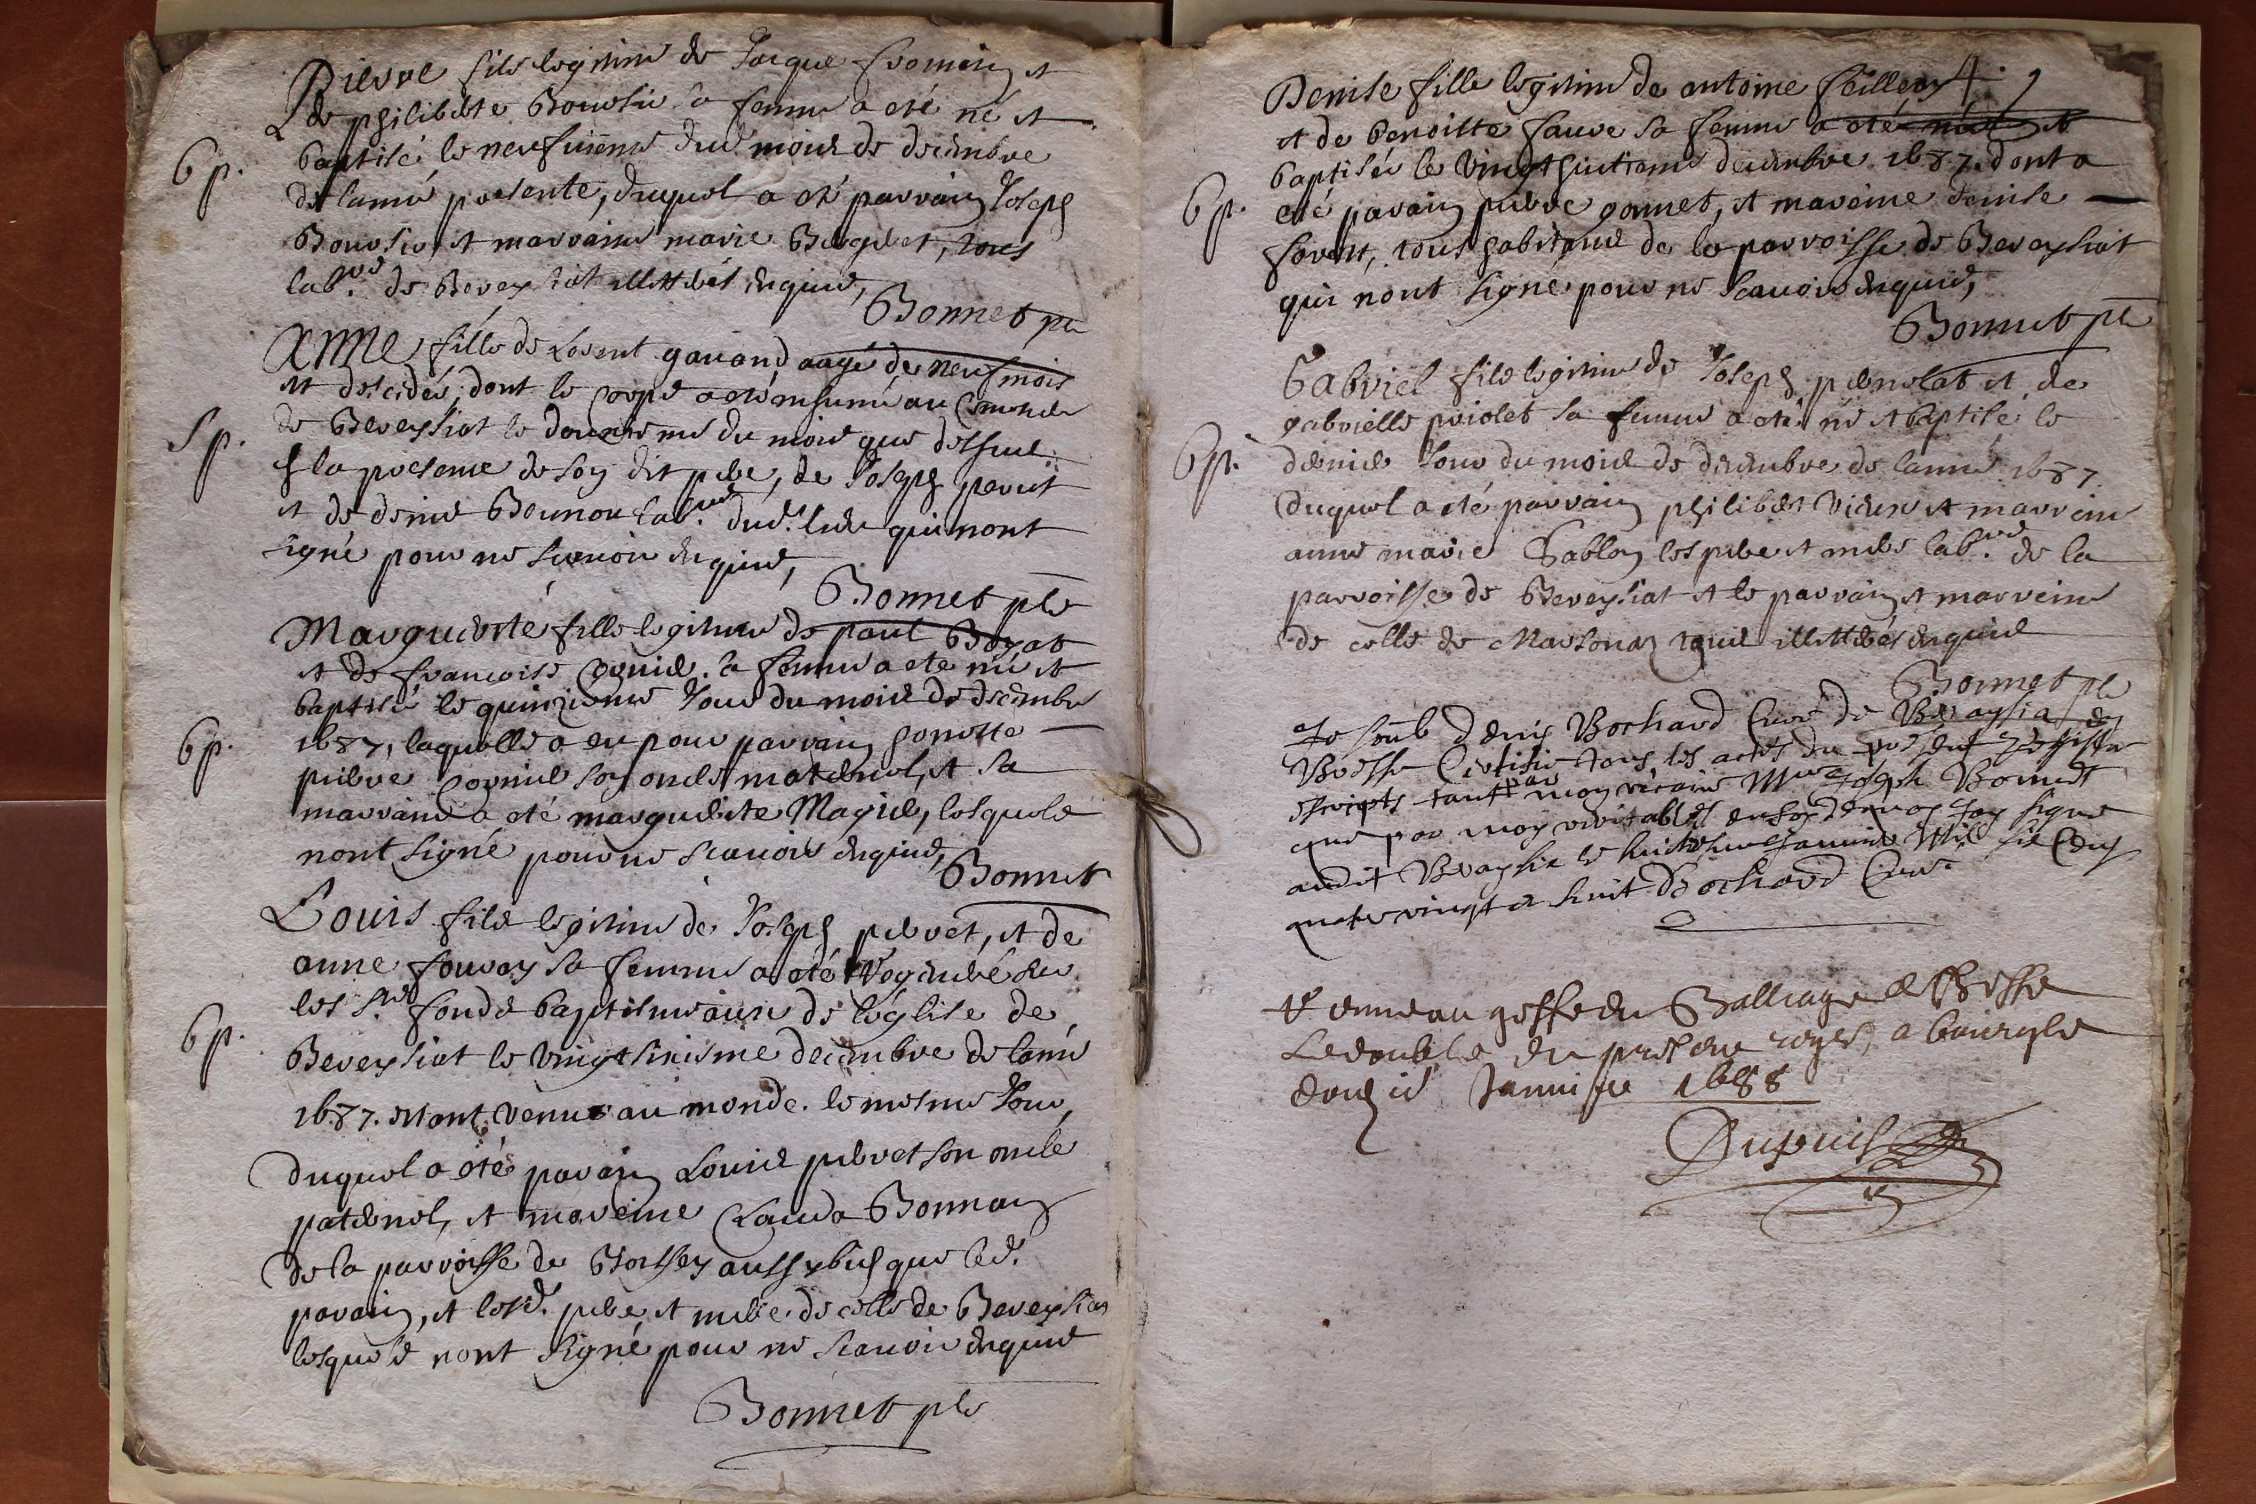 Pierre fils legitime de Jacque fromain et
de philiberte Boursie sa femme a eté né et
bp.
baptisé le neufvieme dud. mois de decembre
de lanné presente, duquel a eté parrain Joseph
Boursie et marraine marie Buguet, tous
labrs. de Bereysiat illitterés enquis,
Bonnet ptre
Anne fille de Lorent gavand aagé de neuf mois
est decedée, dont le corps a eté inhumé au Cimetiere
sp.
de Bereysiat le douzieme du mois que dessus
la presence de son dit pere, de Joseph pernet
et de denis Bounou labrs. dud. lieu qui nont
signé pour ne scavoir enquis,
Bonnet ptre
Marguerite fille legitime de paul Boyat
et de francoise Cornie sa femme a eté née et
baptisée le quinzieme Jour du mois de decembre
bp.
1687, laquelle a eu pour parrain honeste
pierre Cornie son oncle maternel, et sa
marraine a eté marguerite Mayie, lesquels
nont signé pour ne scavoir enquis,
Bonnet
Louis fils legitime de Joseph pervet, et de
anne fouray sa femme a eté regeneré sur
les sts. fonds baptismaux de leglise de
bp.
Bereysiat le vingtsixisme decembre de lanné
1687. estant venu au monde le mesme Jour,
duquel a eté parain Louis pervet son oncle
paternel, et mareine Clauda Bonnain
de la parroisse de Boissey aussy bien que led.
parain, et lesd. pere et mere de celle de Bereysiat
lesquels nont signé pour ne scavoir enquis
Bonnet ptre
4.
Denise fille legitime de antoine feilleux
et de benoitte faure sa femme a eté née et
baptisée le vingthuitieme decembre 1687. dont a
bp.
eté parain pierre gonnet, et mareine denise
forest, tous habitans de la parroisse de Bereysiat
qui nont signé pour ne scavoir enquis,
Bonnet ptre
Gabriel fils legitime de Joseph pernolat et de
gabrielle poiolet sa femme a eté né et baptisé le
bp.
dernier Jour du mois de decembre de lanné 1687
duquel a eté parrain philibert vieux et marreine
anne marie Sablon les pere et mere labrs. de la
parroisse de Bereysiat et le parrain et marreine
de celle de Marsonas tous illitterés enquis
Bonnet ptre
Je soub. Denis Bochard Curé de Bereysia en
Bresse Certifie tous les actes du present registre
escripts tant par mon vicaire Mre Joseph Bonnet
que par moy veritables en foy de quoy Jay signé
audit Bereysia le huictieme Janvier Mil six Cens
quatrevingt et huit Bochard Curé.
Remis au greffe du Balliage de Bresse
Le double du present regre, a bourg le
douz ie Janvier 1688
Dupuis